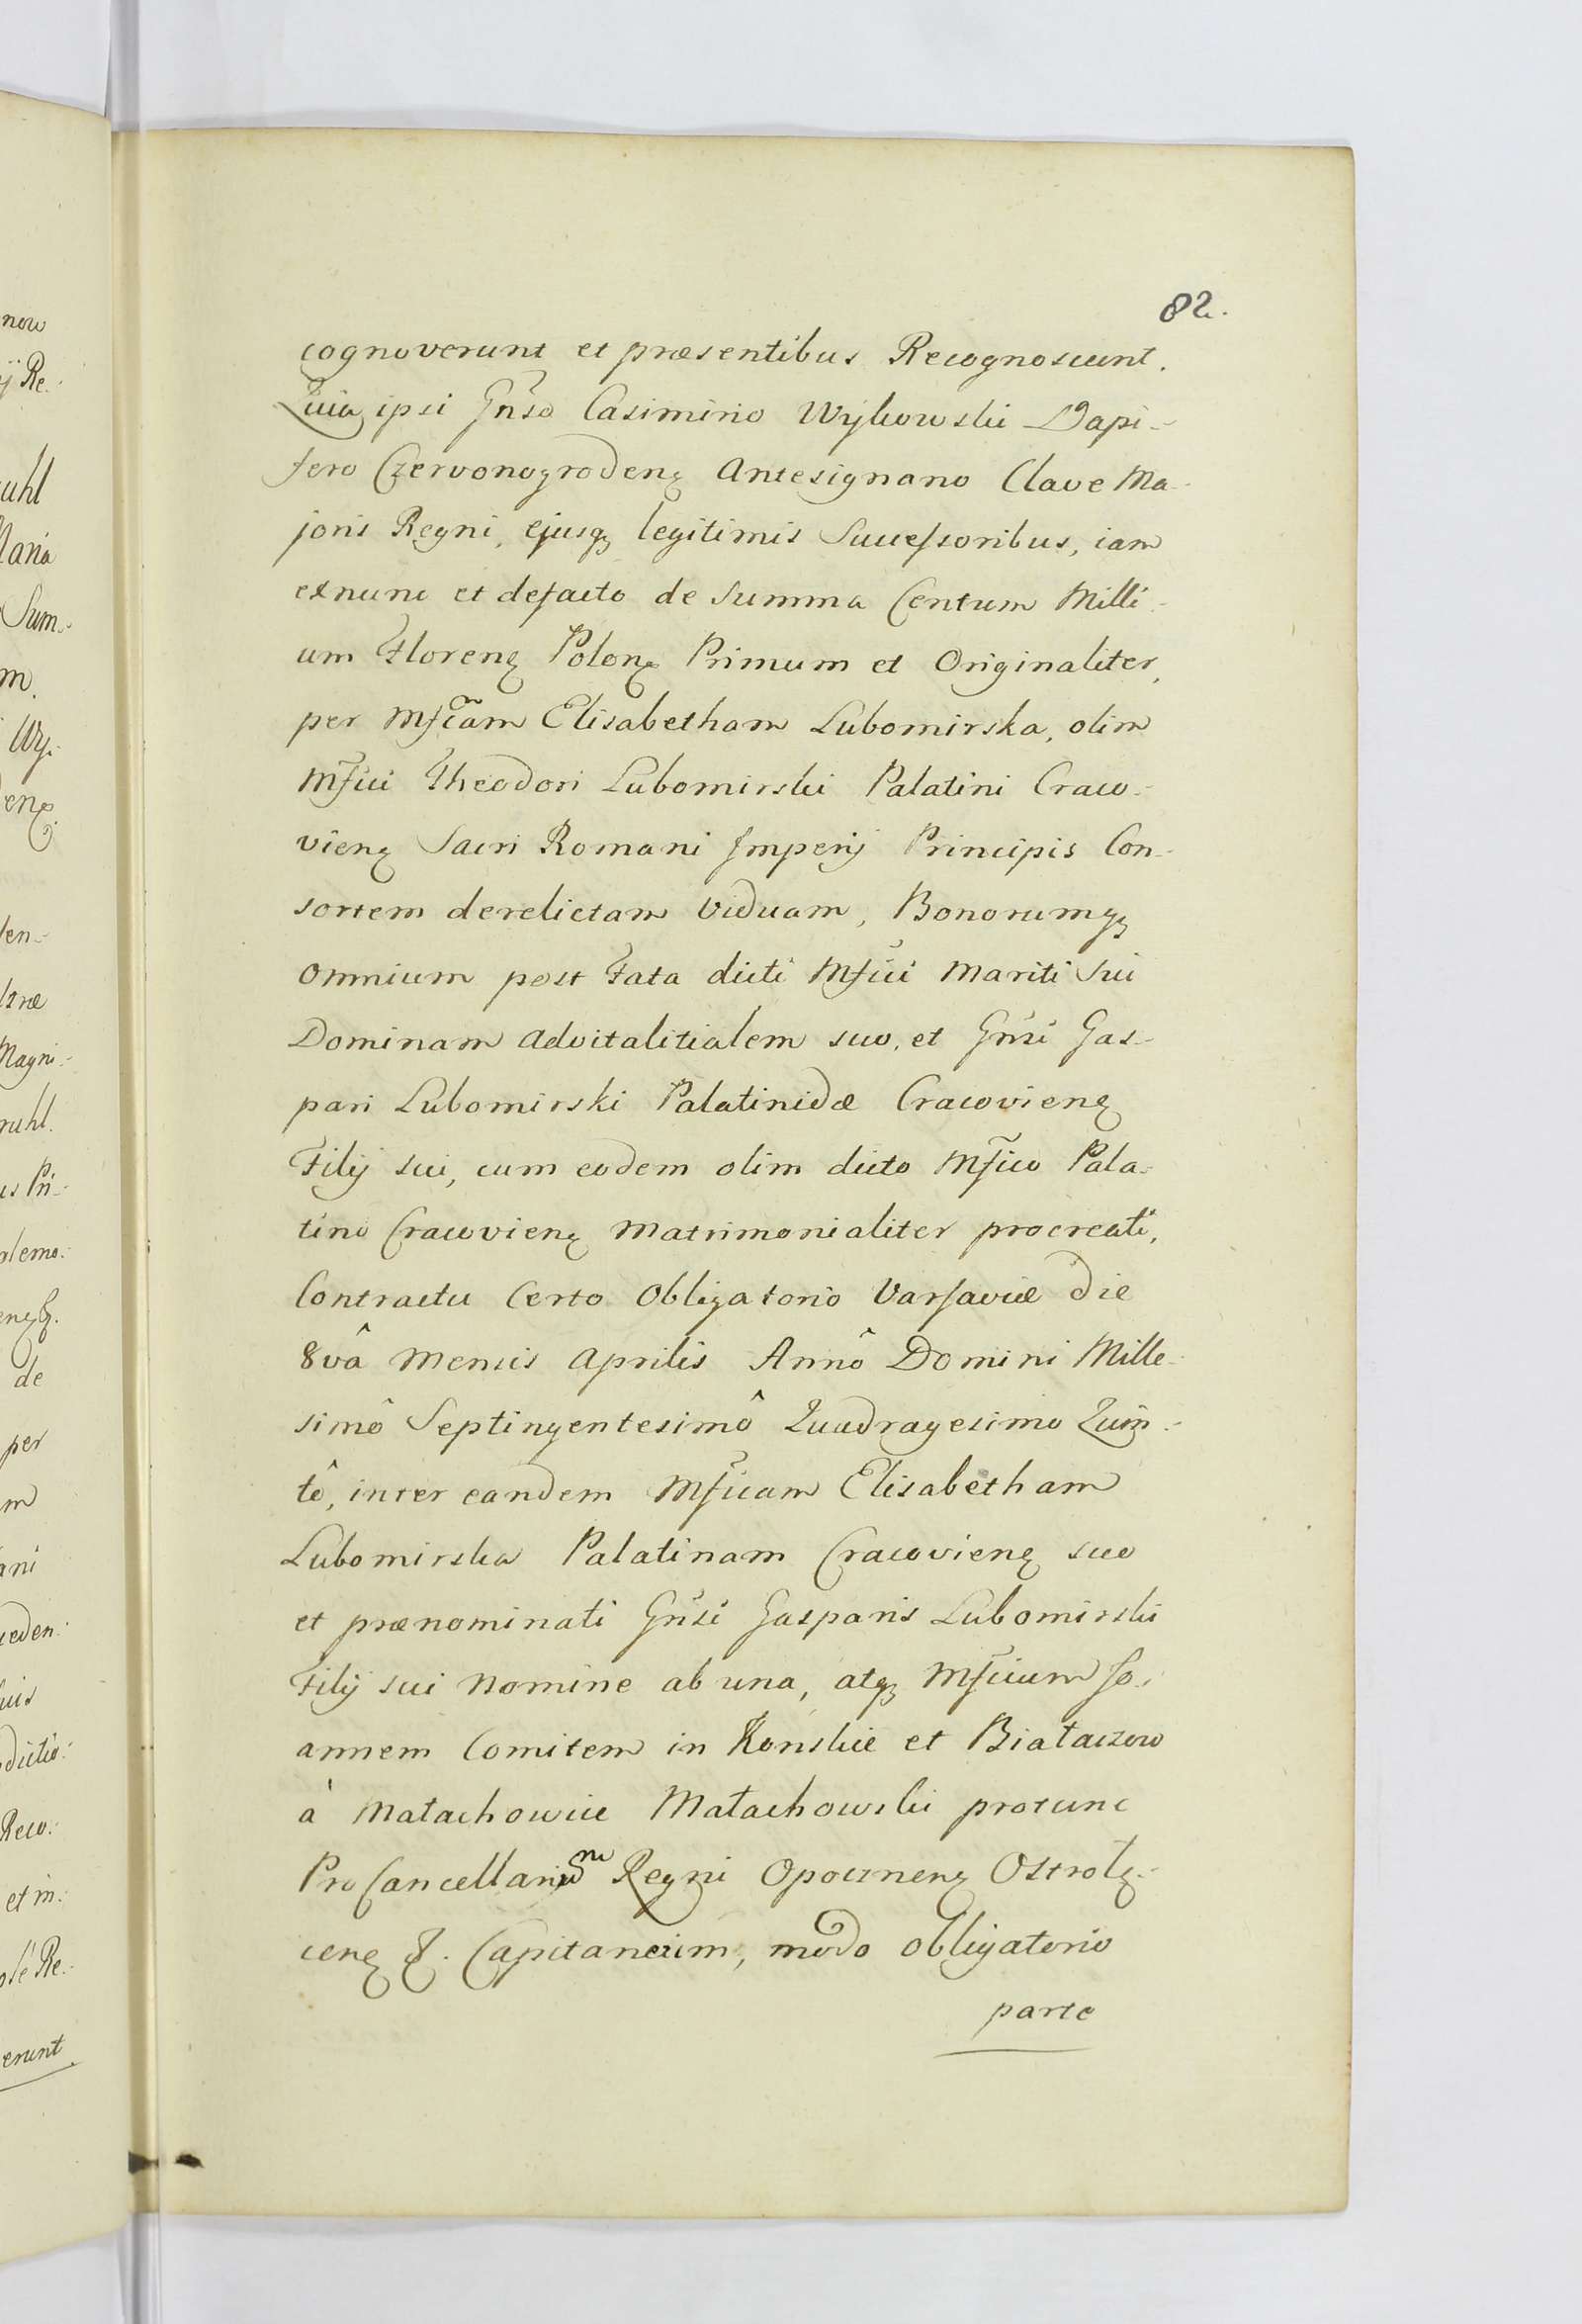 82.
cognoverunt et præsentibus Recognoscunt.
Quia ipsi Gñso Casimirio Wykowski Dapi-
fero Czervonogrodenꝫ Antesignano Clave Ma-
joris Regni, ejusqꝫ legitimis Successoribus, iam
exnunc et defacto de Summa Centum Milli-
um Florenꝫ Polonꝫ Primum et Originaliter,
per Mfic̃am Elisabetham Lubomirska, olim
Mf̃ici Theodori Lubomirski Palatini Craco-
vienꝫ Sacri Romani Imperij Principis Con-
sortem derelictam Viduam, Bonorumqꝫ
omnium post Fata dicti Mf̃ici Mariti Sui
Dominam Advitalitialem suo, et Gñsi Gas-
pari Lubomirski Palatinidæ Cracovienꝫ
Filij sui, cum eodem olim dicto Mf̃ico Pala-
tino Cracovienꝫ Matrimonialiter procreati,
Contractu Certo Obligatorio Varsaviæ die
8vâ Mensis Aprilis Annô Domini Mille-
simô Septingentesimô Quadragesimo Quin-
tô, inter eandem Mf̃icam Elisabetham
Lubomirska Palatinam Cracovienꝫ suo
et prænominati Gñsi Gasparis Lubomirski
Filij sui Nomine ab una, atqꝫ Mf̃icum Jo-
annem Comitem in Konskie et Białaczow
à Małachowice Małachowski protunc
ProCancellarium Regni Opocznenꝫ Ostrołę-
cenꝫ &. Capitaneum, modo obligatorio
parte
now
ij Re:
uhl
Maria
Sum:
m.
Wy:
denꝫ
Magni:
ruhl.
us Pri:
olemo:
de
per
m
ani
ceden:
dictio:
Reco:
et in:
Re:
erunt